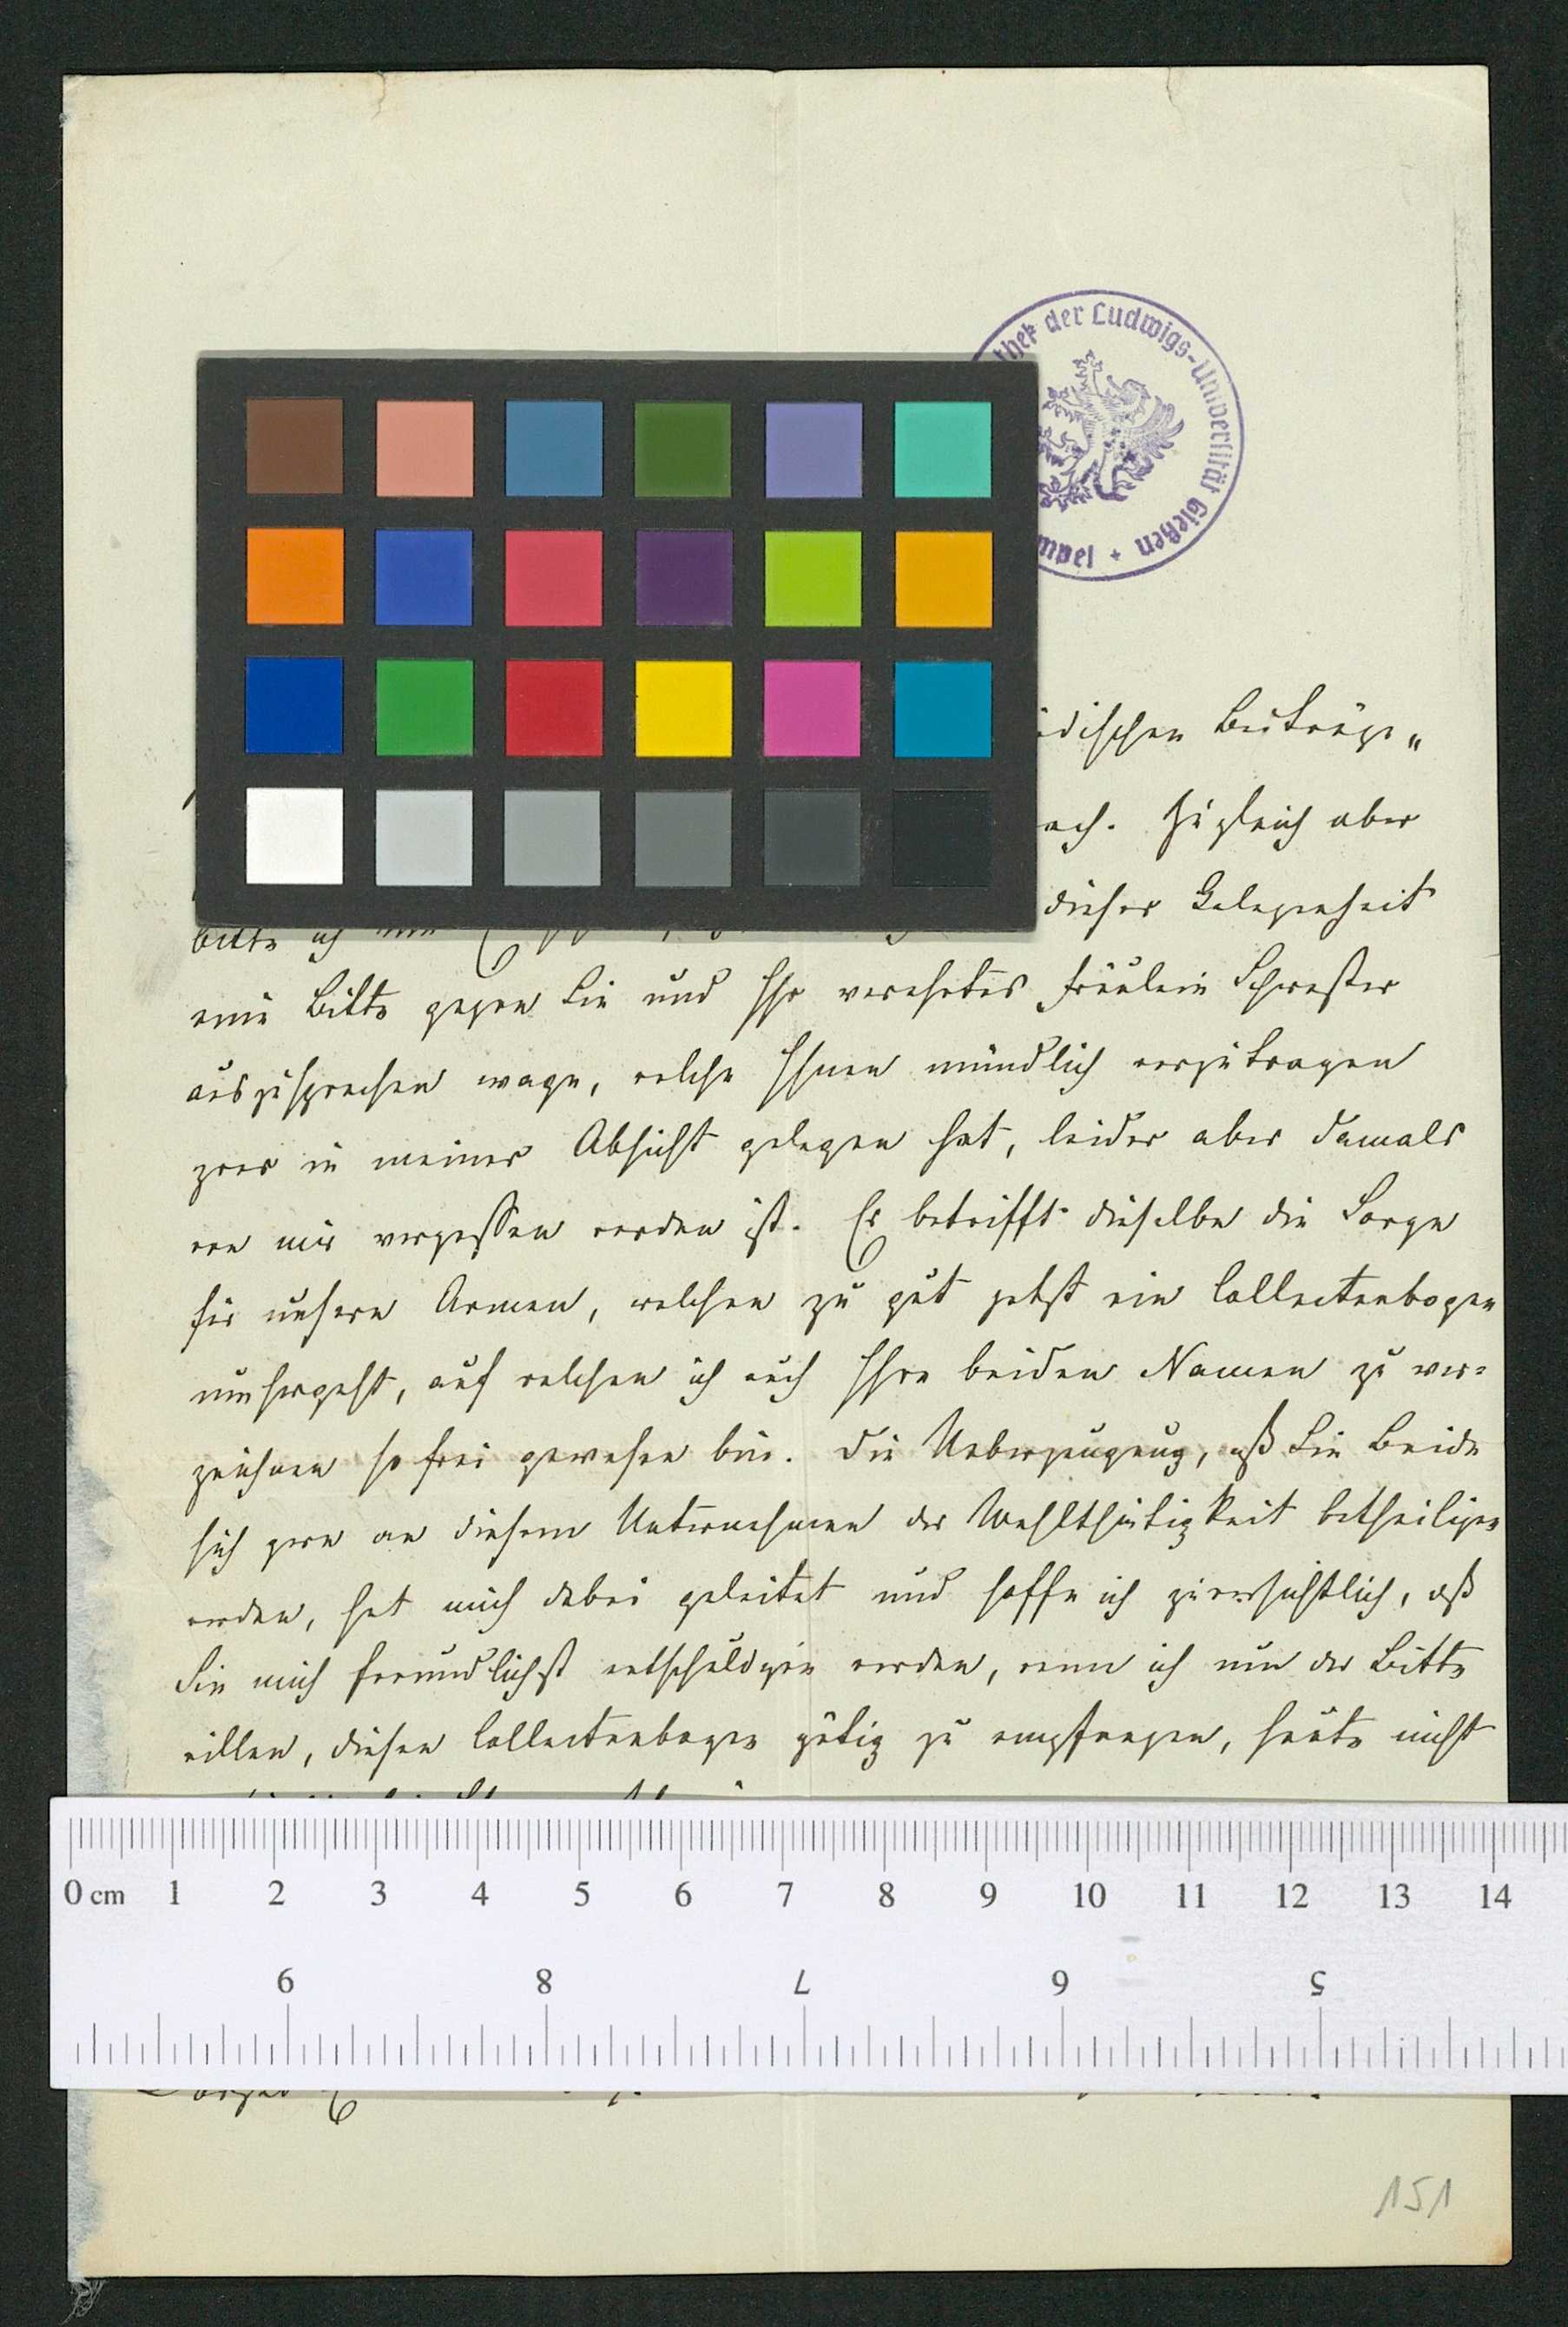 thek der Ludwigs-Universität Gießen +
dischen Beiträge"
ach. Zugleich aber
dieser Gelegenheit
bitte ich um
eine Bitte gegen Sie und Ihr verehrtes Fräulein Schwester
auszusprechen wage, welche Ihnen mündlich vorzutragen
zwar in meiner Absicht gelegen hat, leider aber damals
von mir vergessen worden ist. Es betrifft dieselbe die Sorge
für unsere Armen, welchen zu gut jetzt ein Collectenbogen
umhergeht, auf welchen ich auch Ihre beiden Namen zu ver=
zeichnen so frei gewesen bin. Die Ueberzeugung, daß Sie Beide
sich gern an diesem Unternehmen der Wohlthätigkeit betheiligen
werden, hat mich dabei geleitet und hoffe ich zuversichtlich, daß
Sie mich freundlichst entschuldigen werden, wenn ich um der Bitte
willen, diesen Collectenbogen gütig zu empfangen, heute nicht
0 cm 1 2 3 4 5 6 7 8 9 10 11 12 13 14
9 8 7 6 5
151